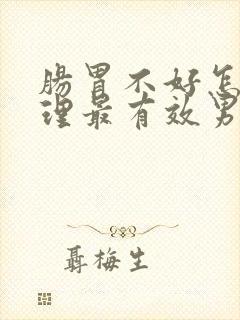 腸胃不好怎
理最有效男
聶梅生